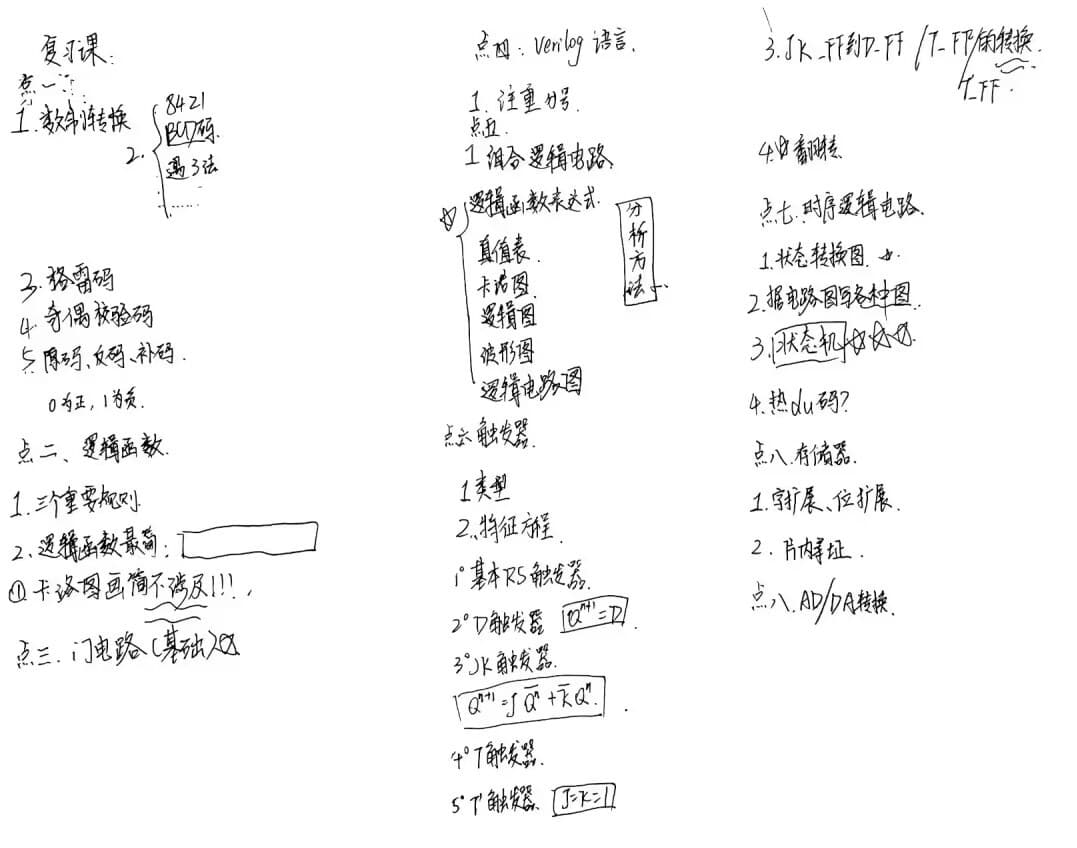 复习课：
点一：
1.数制转换
2.
8421
BCD码.
遇3法
……
3.格雷码
4.奇偶校验码
5.原码、反码、补码.
0为正，1为负.
点二、逻辑函数.
1.三个重要规则
2.逻辑函数最简：
①卡诺图画简不涉及!!!.
点三.门电路(基础)☆
点四：Verilog 语言.
1.注重分号
点五.
1组合逻辑电路
☆逻辑函数表达式.
真值表.
卡诺图.
逻辑图
波形图
逻辑电路图
分析方法
点六触发器.
1类型
2.特征方程.
1°基本RS触发器.
2°D触发器 Qⁿ⁺¹=D.
3°JK触发器.
Qⁿ⁺¹=JQ̅ⁿ+K̅Qⁿ.
4°T触发器.
5°T'触发器 J=K=1
3.JK_FF到D_FF/T_FF/的转换.
T'_FF.
4.翻转
点七.时序逻辑电路.
1.状态转换图.☆.
2.据电路图写各种图.
3.状态机☆☆☆.
4.热du码?
点八.存储器.
1.字扩展、位扩展.
2.片内寻址.
点八.AD/DA转换.